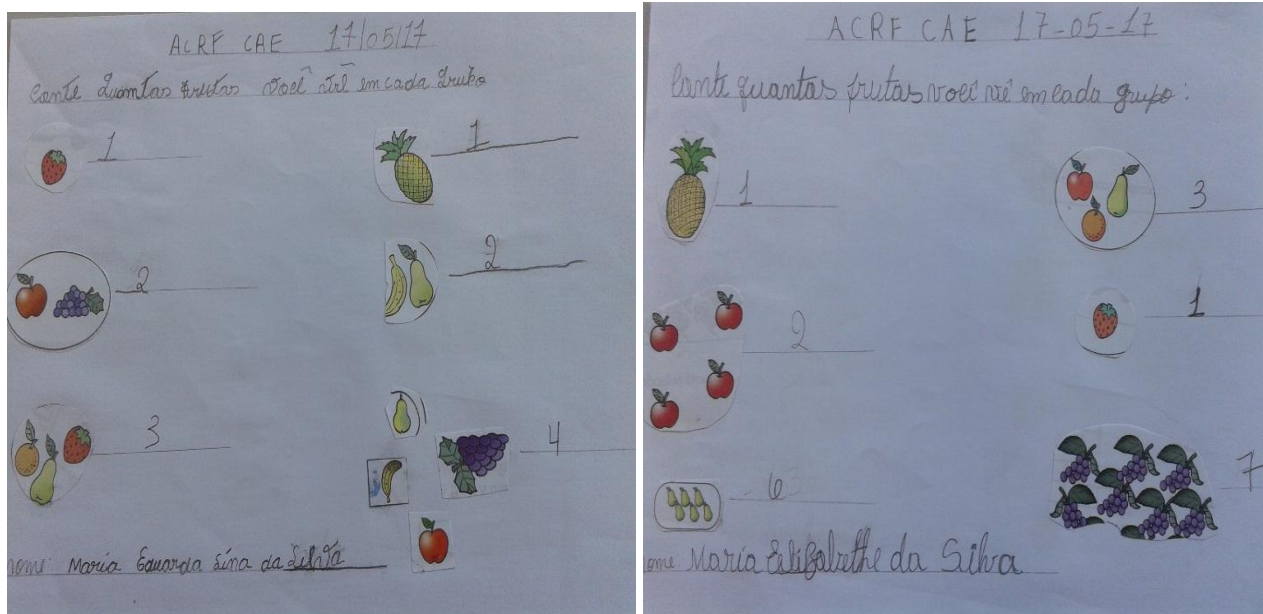 ACRF CAE 17/05/17
Conte quantas frutas você vê em cada grupo
1 1
2 2
3 4
nome: Maria Eduarda Sina da Silva
ACRF CAE 17-05-17
Conte quantas frutas você vê em cada grupo:
1 3
2 1
6 7
nome Maria Elizabethe da Silva